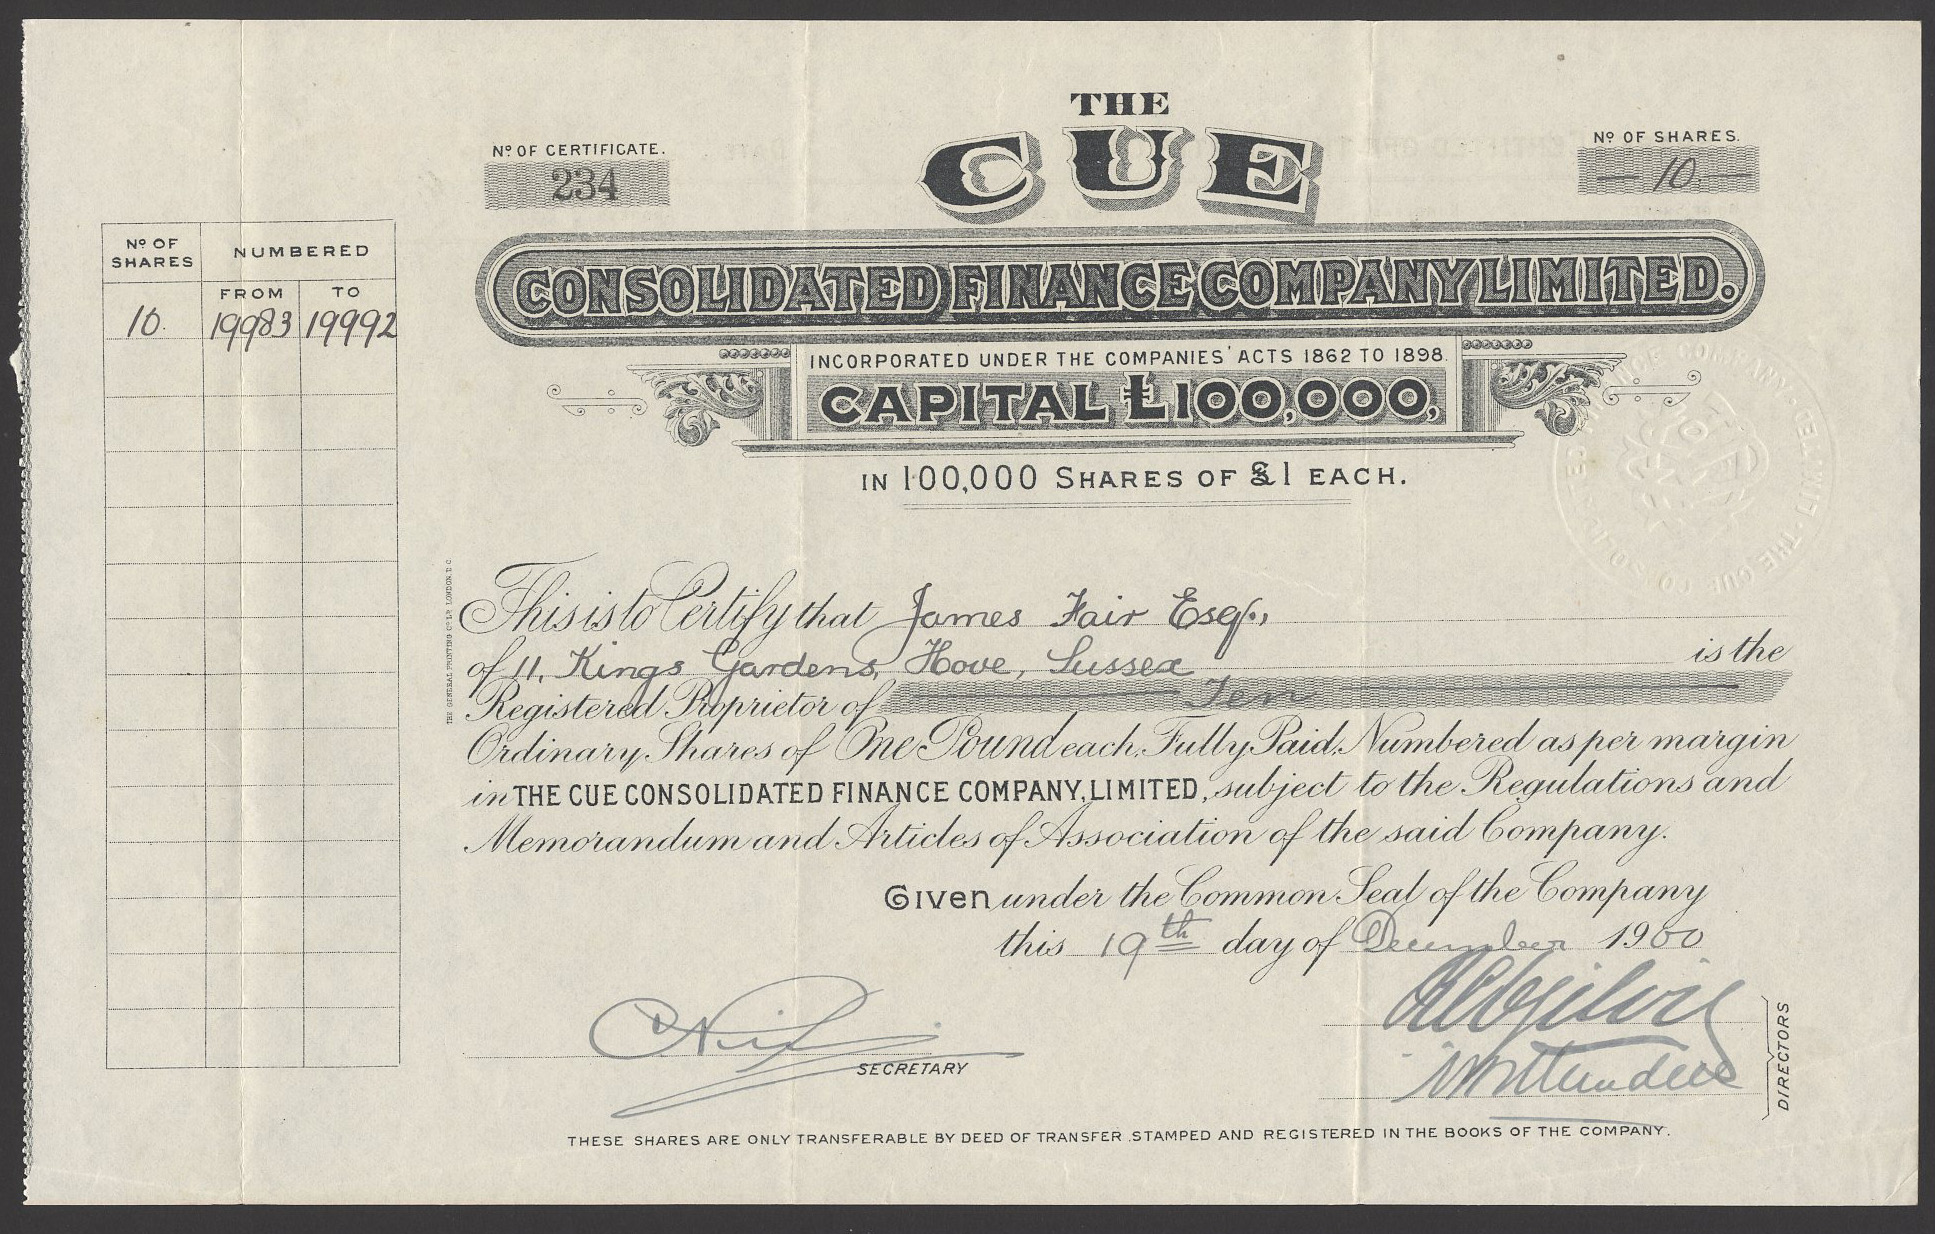 THE
CUE
CONSOLIDATED FINANCE COMPANY LIMITED.
INCORPORATED UNDER THE COMPANIES' ACTS 1862 TO 1898.
CAPITAL £100,000,
IN 100,000 SHARES OF £1 EACH.
Nº OF CERTIFICATE.
234
Nº OF SHARES.
10.
Nº OF SHARES NUMBERED
FROM TO
10. 19983 19992
This is to Certify that James Fair Esqr.,
of 11, Kings Gardens, Hove, Sussex is the
Registered Proprietor of Ten
Ordinary Shares of One Pound each, Fully Paid, Numbered as per margin
in THE CUE CONSOLIDATED FINANCE COMPANY, LIMITED, subject to the Regulations and
Memorandum and Articles of Association of the said Company.
Given under the Common Seal of the Company
this 19th day of December 1900
SECRETARY
DIRECTORS
THESE SHARES ARE ONLY TRANSFERABLE BY DEED OF TRANSFER STAMPED AND REGISTERED IN THE BOOKS OF THE COMPANY.
THE GENERAL PRINTING Cº Lᴰ LONDON E C
THE CUE CONSOLIDATED FINANCE COMPANY · LIMITED ·